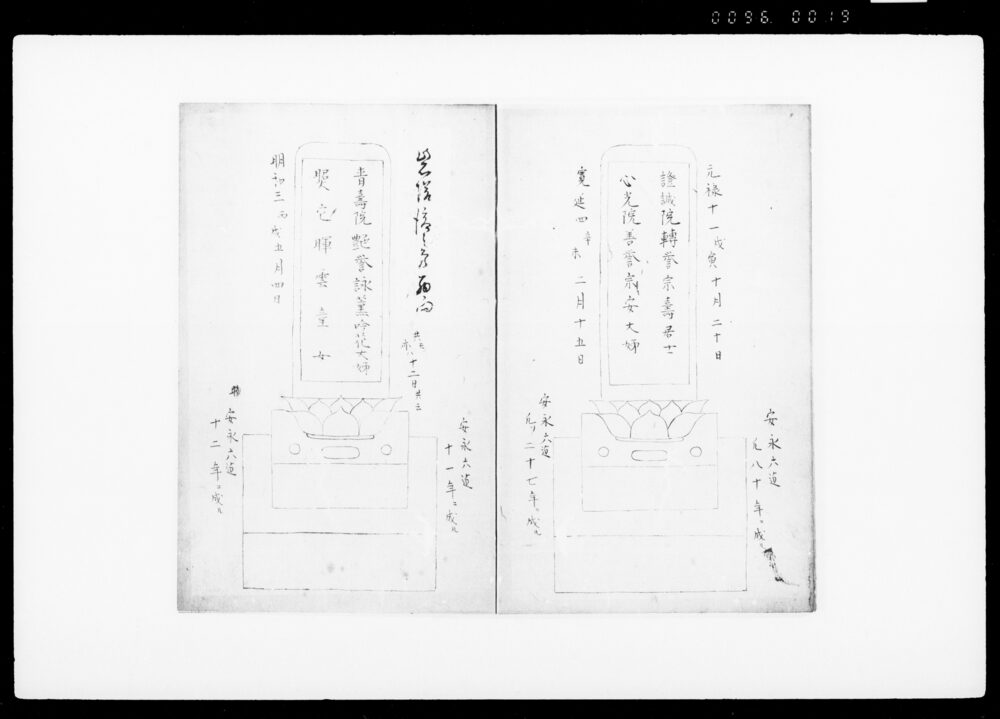 0096. 0019
元禄十一戊寅十月二十日
證誠院轉誉宗壽居士
心光院善誉宗安大姉
寛延四辛未二月十五日
安永六迠
凡八十年ニ成ル
安永六迠
凡二十七年ニ成ル
青壽院艶誉詠薫吟花大姉
暉雲童女
明和三丙戌五月四日
安永六迠
十一年ニ成ル
安永六迠
十二年ニ成ル